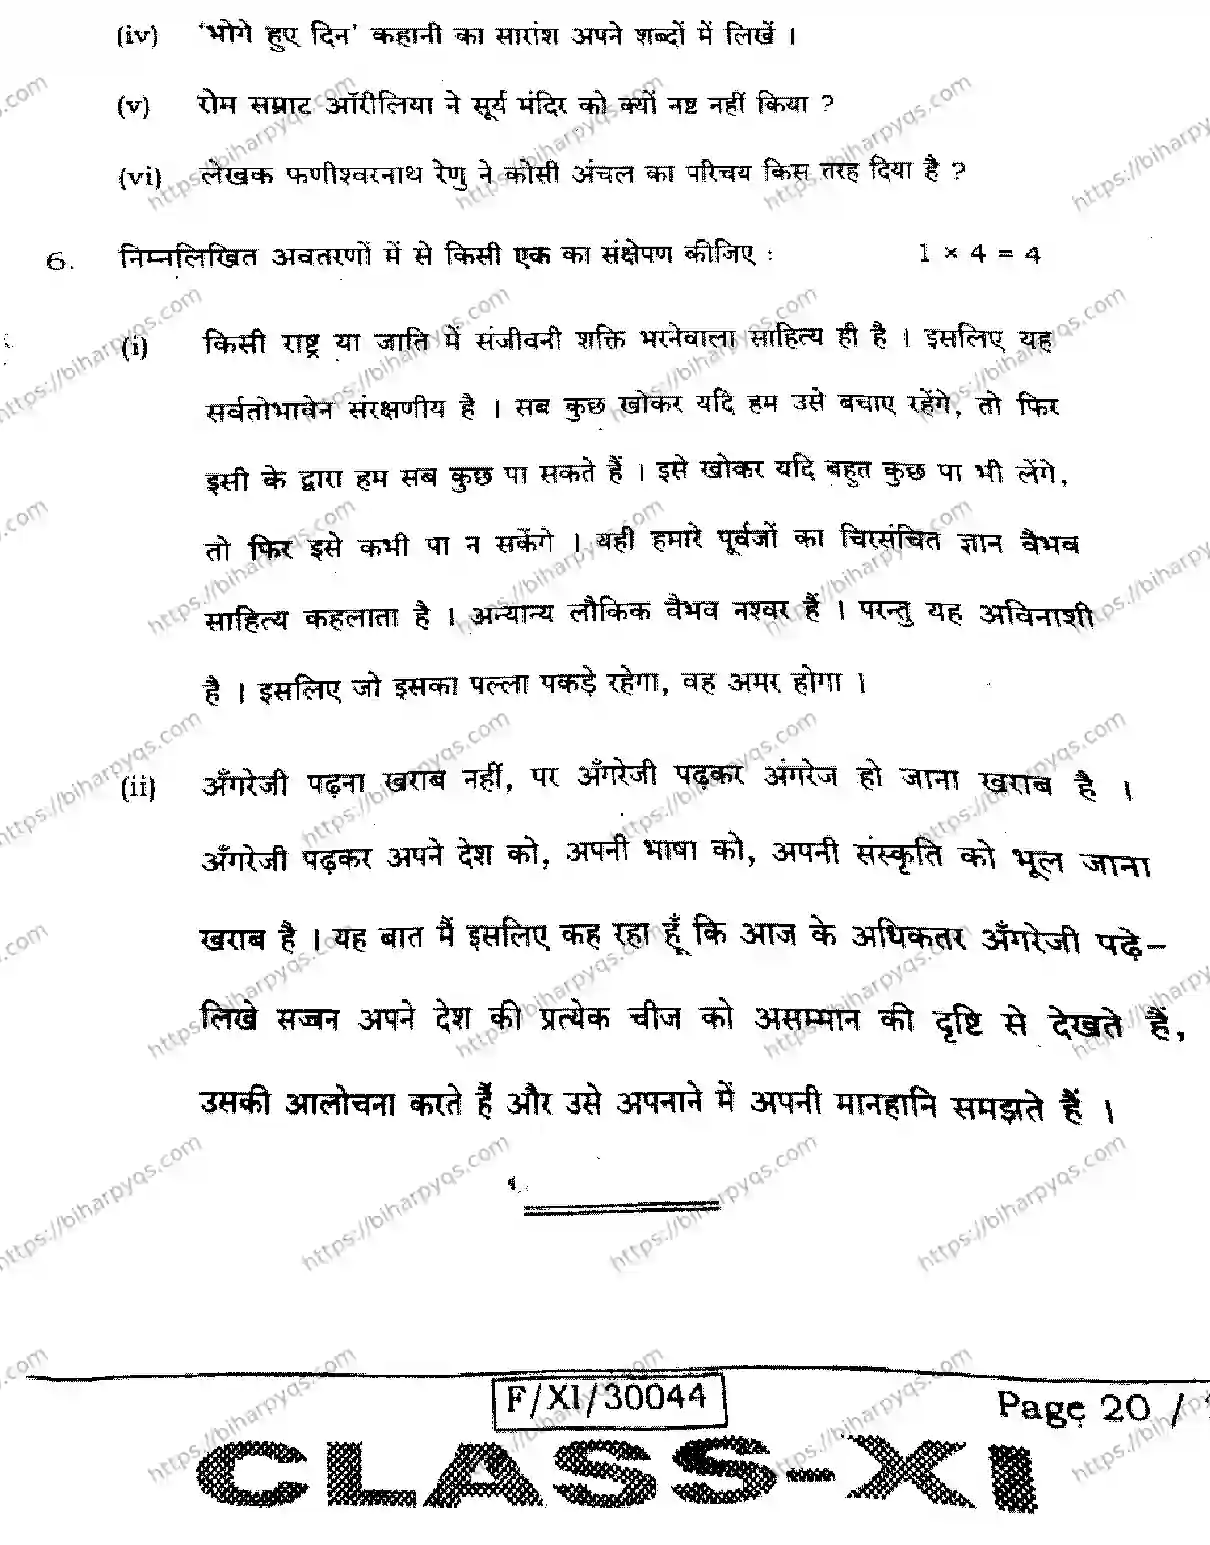 (iv) 'भोगे हुए दिन' कहानी का सारांश अपने शब्दों में लिखें ।
(v) रोम सम्राट ऑरीलिया ने सूर्य मंदिर को क्यों नष्ट नहीं किया ?
(vi) लेखक फणीश्वरनाथ रेणु ने कोसी अंचल का परिचय किस तरह दिया है ?
6. निम्नलिखित अवतरणों में से किसी एक का संक्षेपण कीजिए : 1 × 4 = 4
(i) किसी राष्ट्र या जाति में संजीवनी शक्ति भरनेवाला साहित्य ही है । इसलिए यह
सर्वतोभावेन संरक्षणीय है । सब कुछ खोकर यदि हम उसे बचाए रहेंगे, तो फिर
इसी के द्वारा हम सब कुछ पा सकते हैं । इसे खोकर यदि बहुत कुछ पा भी लेंगे,
तो फिर इसे कभी पा न सकेंगे । यही हमारे पूर्वजों का चिरसंचित ज्ञान वैभव
साहित्य कहलाता है । अन्यान्य लौकिक वैभव नश्वर हैं । परन्तु यह अविनाशी
है । इसलिए जो इसका पल्ला पकड़े रहेगा, वह अमर होगा ।
(ii) अँगरेजी पढ़ना खराब नहीं, पर अँगरेजी पढ़कर अंगरेज हो जाना खराब है ।
अँगरेजी पढ़कर अपने देश को, अपनी भाषा को, अपनी संस्कृति को भूल जाना
खराब है । यह बात मैं इसलिए कह रहा हूँ कि आज के अधिकतर अँगरेजी पढ़े-
लिखे सज्जन अपने देश की प्रत्येक चीज को असम्मान की दृष्टि से देखते हैं,
उसकी आलोचना करते हैं और उसे अपनाने में अपनी मानहानि समझते हैं ।
F/XI/30044
Page 20 /
CLASS-XI
https://biharpyqs.com